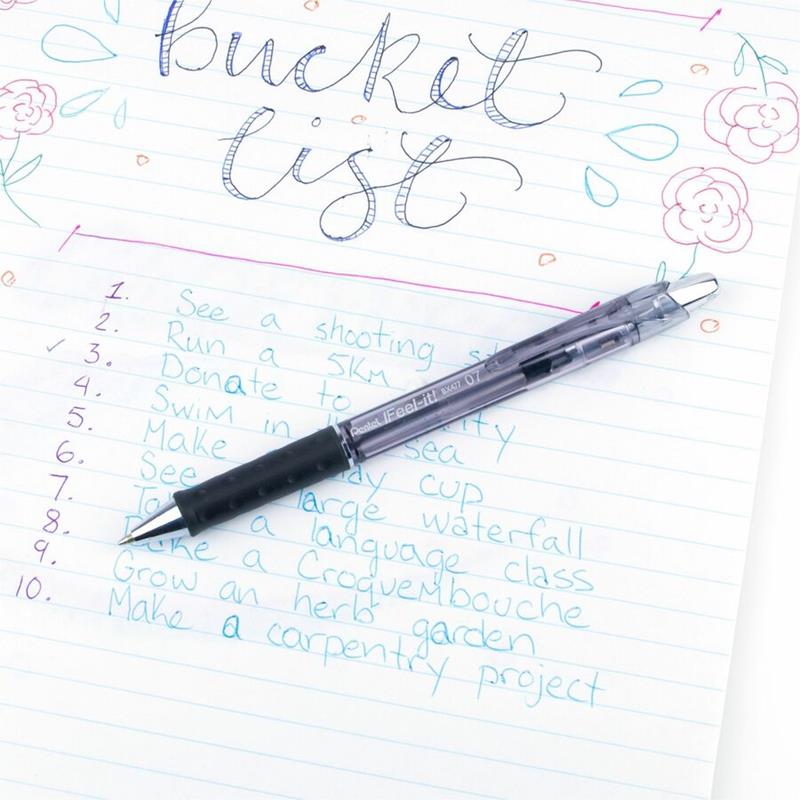 bucket
list
1. See a shooting
2. Run a 5KM
✓ 3. Donate to
4. Swim in sea
5. Make cup
6. See large waterfall
7. a language class
8. a Croquembouche
9. Grow an herb garden
10. Make a carpentry project
Pentel IFeel-it! BX477 07